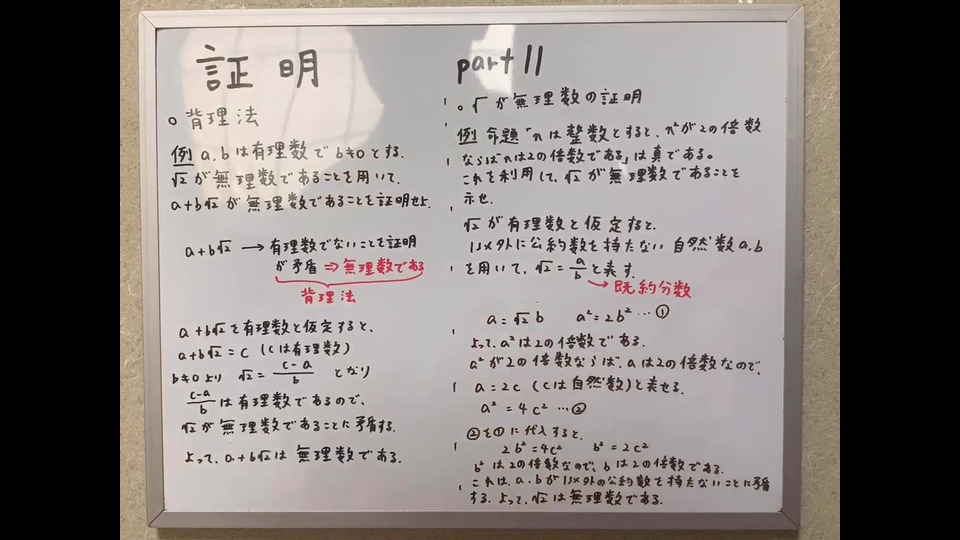 証明
。背理法
例 a,bは有理数でb≠0とする。
√2が無理数であることを用いて、
a+b√2が無理数であることを証明せよ。
a+b√2 → 有理数でないことを証明
が矛盾 ⇒ 無理数である
背理法
a+b√2を有理数と仮定すると、
a+b√2 = c (cは有理数)
b≠0より √2 = (c-a)/b となり
(c-a)/b は有理数であるので、
√2が無理数であることに矛盾する。
よって、a+b√2は無理数である。
part 11
。√が無理数の証明
例 命題「nは整数とすると、n²が2の倍数
ならばnは2の倍数である」は真である。
これを利用して、√2が無理数であることを
示せ。
√2が有理数と仮定すると、
1以外に公約数を持たない自然数a,b
を用いて、√2 = a/b と表す。
→ 既約分数
a = √2 b a² = 2b² … ①
よって、a²は2の倍数である。
a²が2の倍数ならば、aは2の倍数なので、
a = 2c (cは自然数)と表せる。
a² = 4c² … ②
②を①に代入すると、
2b² = 4c² b² = 2c²
b²は2の倍数なので、bは2の倍数である。
これは、a,bが1以外の公約数を持たないことに矛盾
する。よって、√2は無理数である。